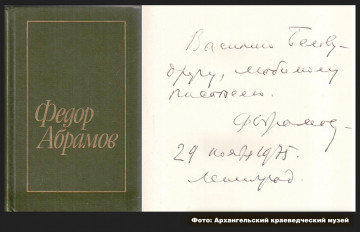 Федор
Абрамов
Василию Белову –
другу, любимому
писателю.
Ф. Абрамов
29 ноября 1975.
Ленинград.
Фото: Архангельский краеведческий музей